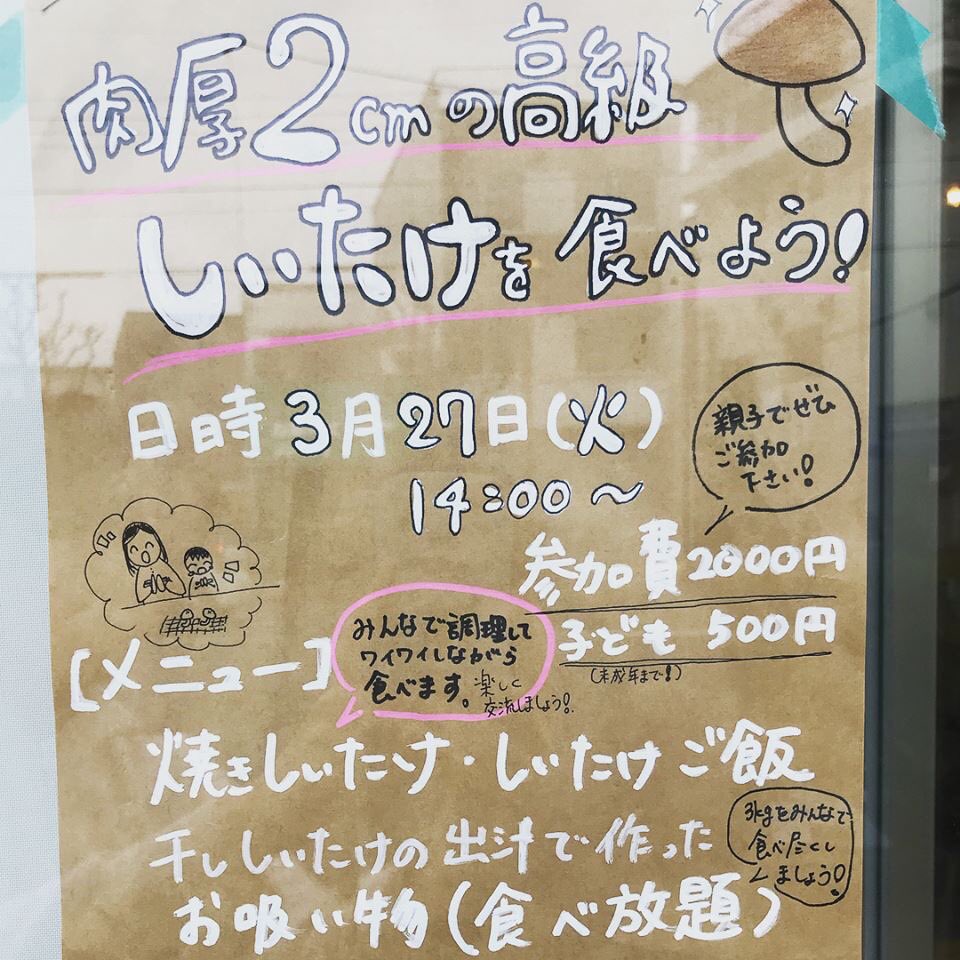 肉厚2cmの高級
しいたけを食べよう!
日時 3月27日(火)
14:00〜
親子でぜひ
ご参加
下さい!
参加費2000円
子ども 500円
(未成年まで!)
[メニュー]
みんなで調理して
ワイワイしながら
食べます。楽しく
交流しましょう!
焼きしいたけ・しいたけご飯
干ししいたけの出汁で作った
お吸い物(食べ放題)
3kgをみんなで
食べ尽くし
ましょう!